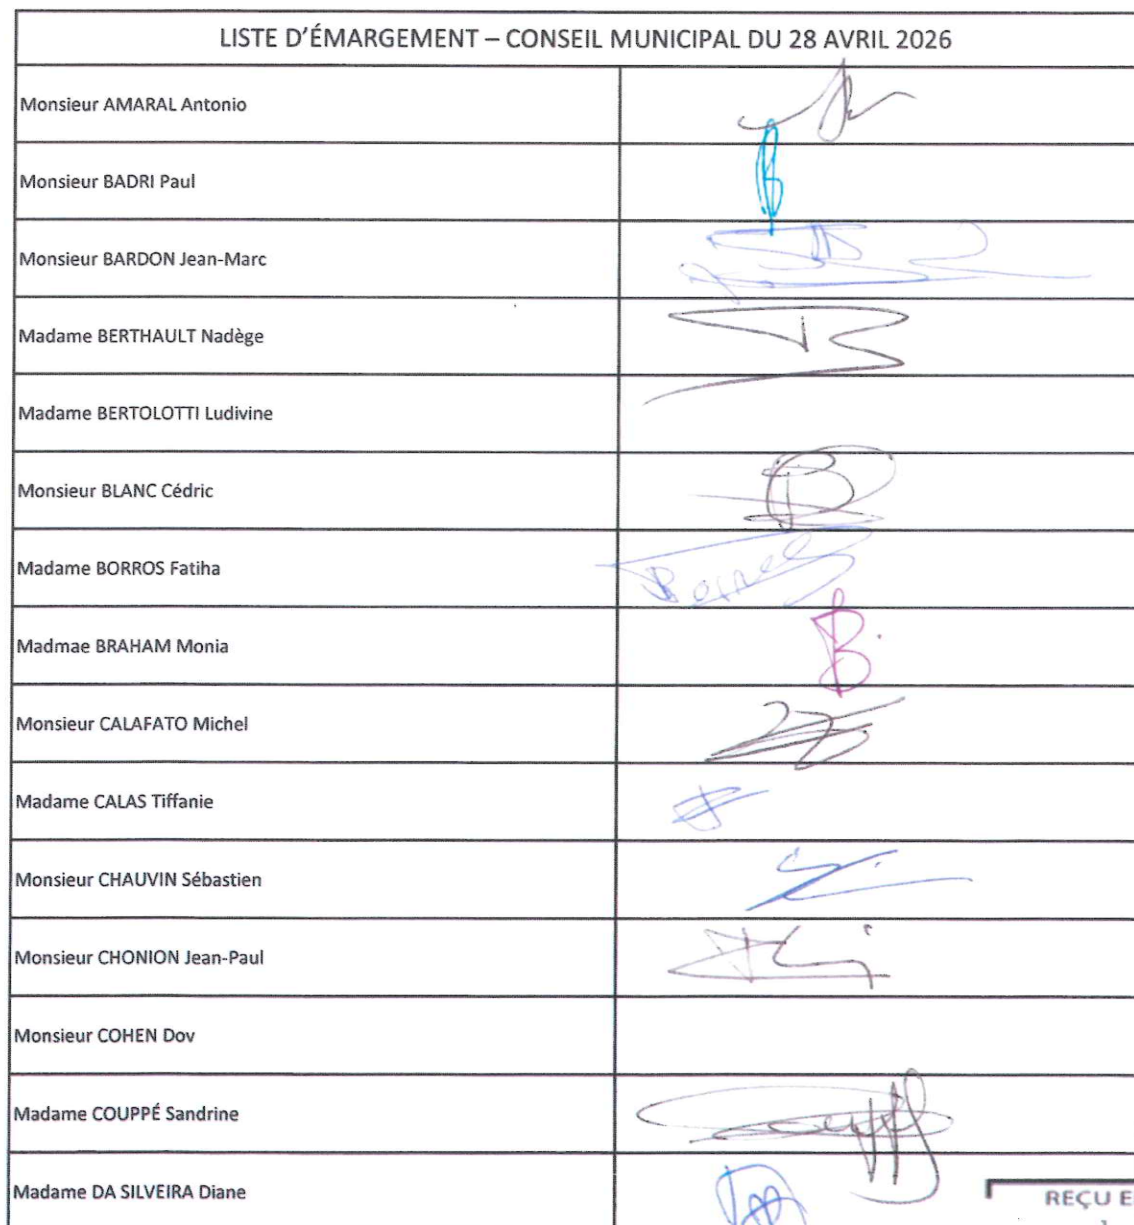 LISTE D'ÉMARGEMENT – CONSEIL MUNICIPAL DU 28 AVRIL 2026
Monsieur AMARAL Antonio
Monsieur BADRI Paul
Monsieur BARDON Jean-Marc
Madame BERTHAULT Nadège
Madame BERTOLOTTI Ludivine
Monsieur BLANC Cédric
Madame BORROS Fatiha
Madmae BRAHAM Monia
Monsieur CALAFATO Michel
Madame CALAS Tiffanie
Monsieur CHAUVIN Sébastien
Monsieur CHONION Jean-Paul
Monsieur COHEN Dov
Madame COUPPÉ Sandrine
Madame DA SILVEIRA Diane
REÇU E